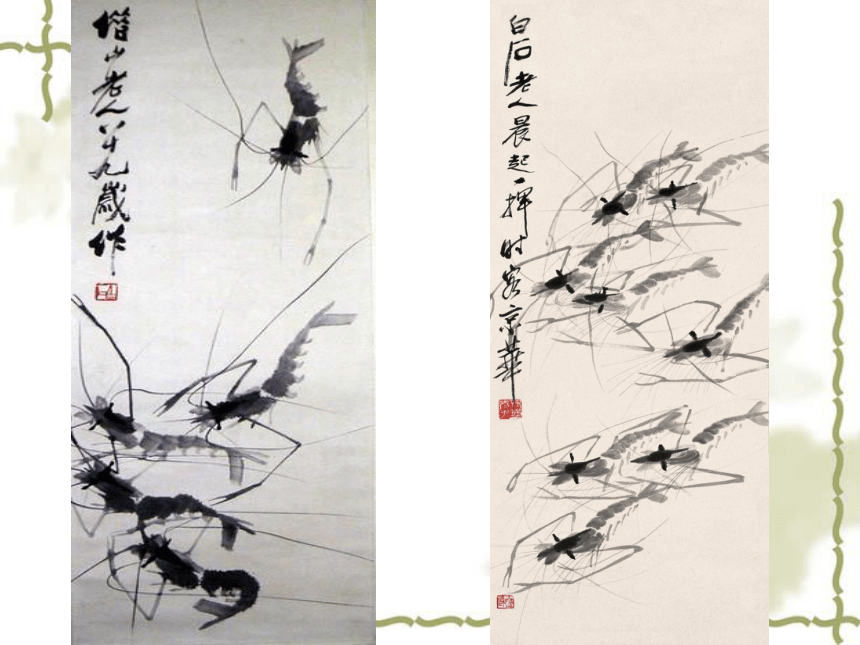 借山老人八十九歲作
白石老人晨起一揮時客京華